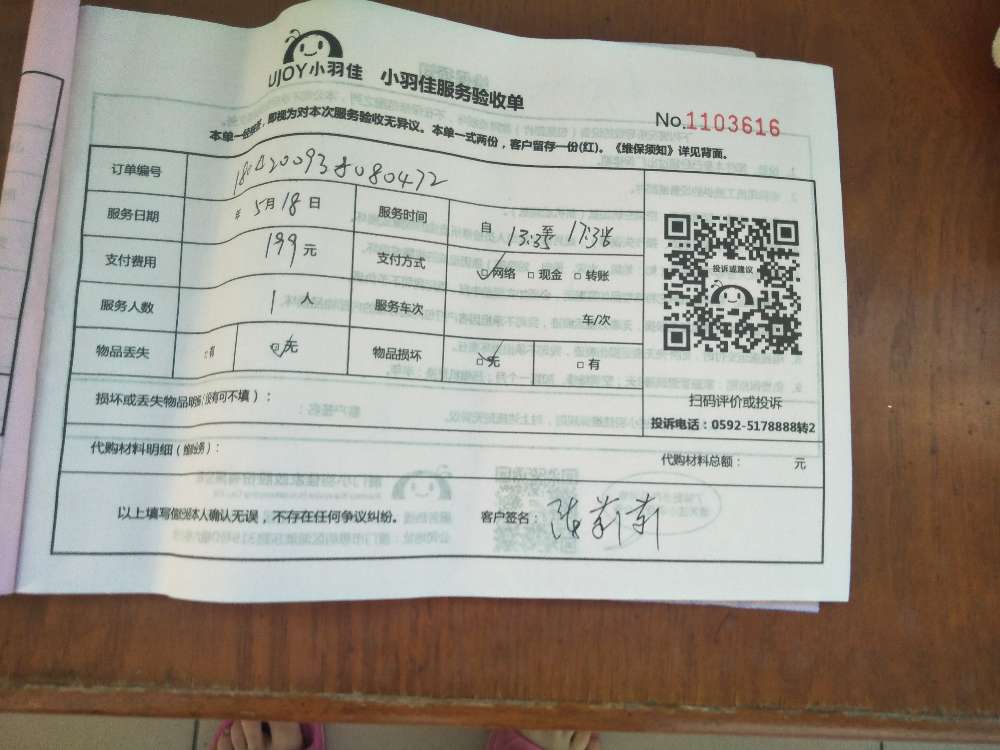 UJOY小羽佳 小羽佳服务验收单
No.1103616
本单一经签名,即视为对本次服务验收无异议。本单一式两份,客户留存一份(红)。《维保须知》详见背面。
订单编号 180420093808080472
服务日期 年 5月18日 服务时间 自 13:35 至 17:36
支付费用 199元 支付方式 ☑网络 □现金 □转账
服务人数 1人 服务车次 车/次
物品丢失 □有 ☑无 物品损坏 ☑无 □有
投诉或建议
扫码评价或投诉
投诉电话:0592-5178888转2
损坏或丢失物品明细(没有可不填):
代购材料明细(维修):
代购材料总额: 元
以上填写但经本人确认无误,不存在任何争议纠纷。 客户签名: